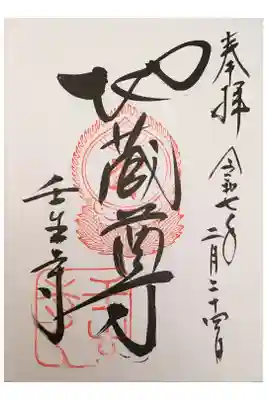 奉拝
令和七年
二月二十四日
地蔵尊
壬生寺